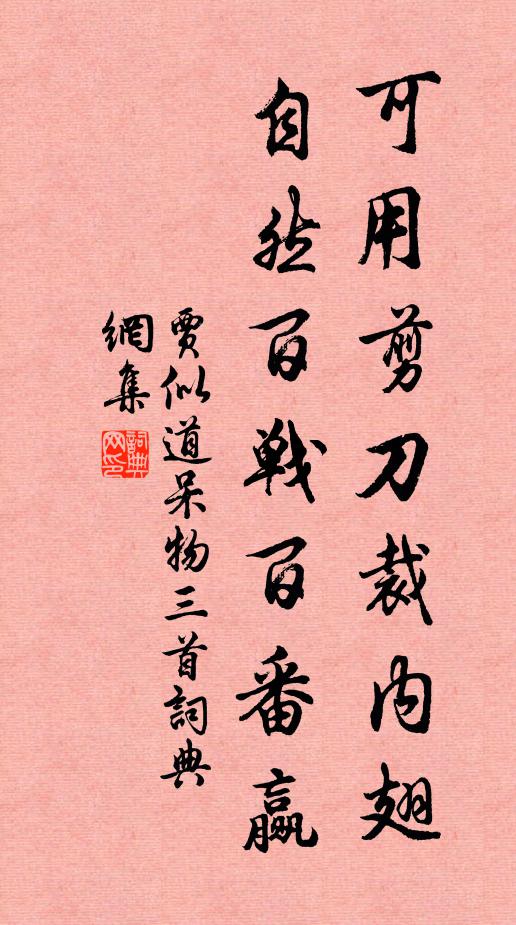 可用剪刀裁内翅
自然百戰百番贏
賈似道呆物三首詞典
網集
詞典網印